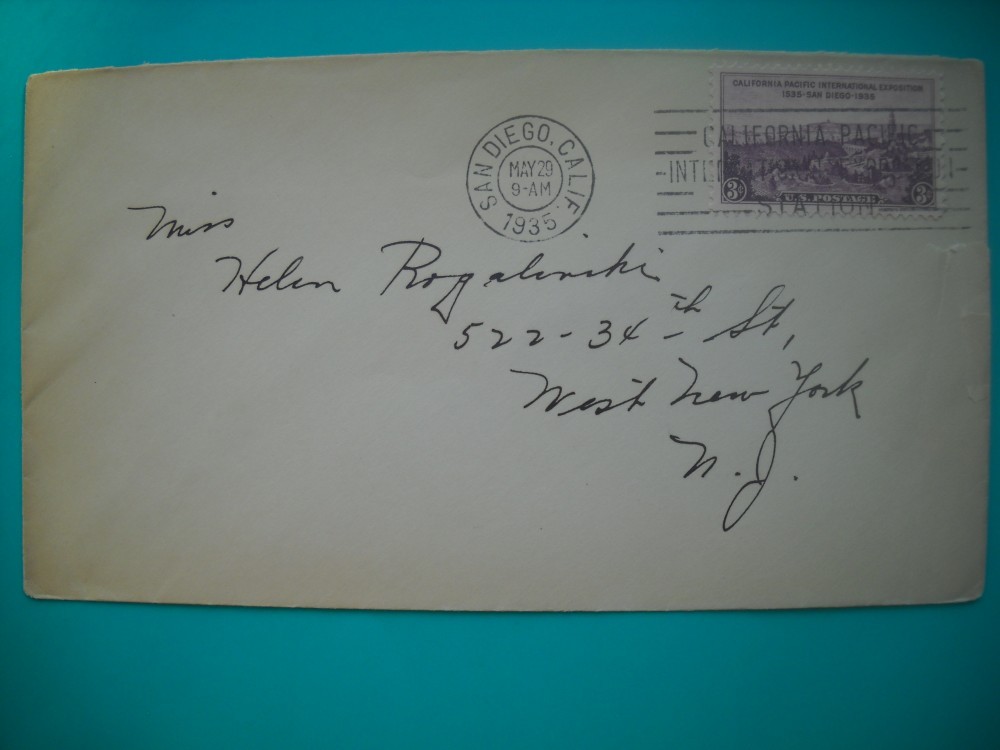 CALIFORNIA PACIFIC INTERNATIONAL EXPOSITION
1935-SAN DIEGO-1936
SAN DIEGO, CALIF.
MAY 29
9-AM
1935
CALIFORNIA PACIFIC
INTERNATIONAL EXPOSITION
STATION
3¢ U.S. POSTAGE 3¢
Miss
Helen Rogalinski
522-34th St,
West New York
N.J.